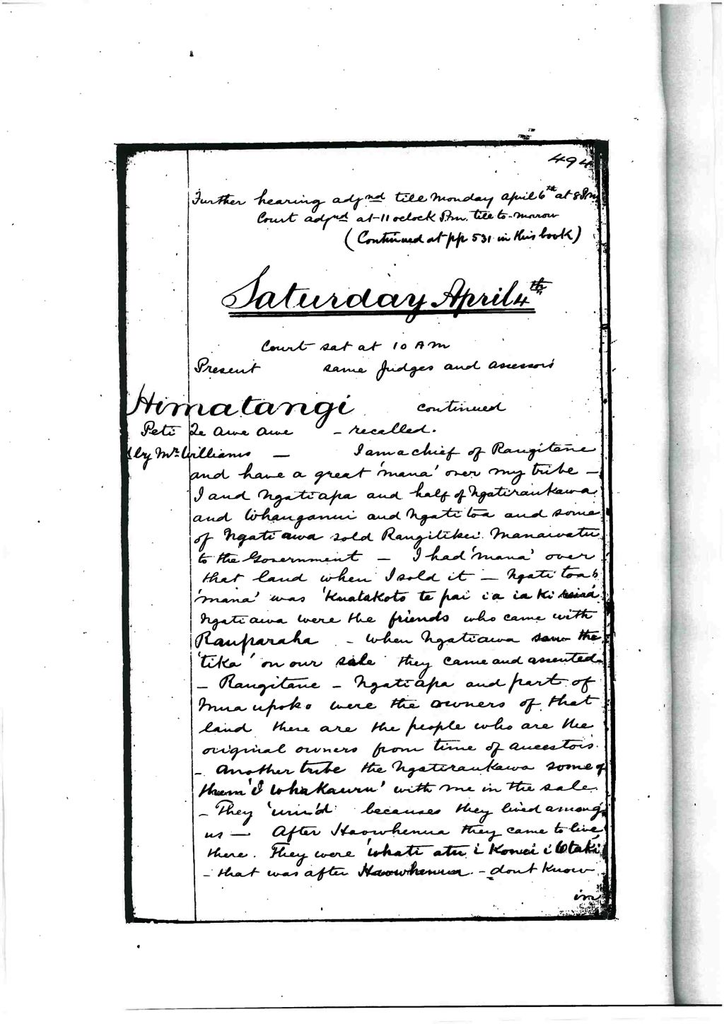 494
Further hearing adjnd till Monday April 6th at 8 Pm
Court adjnd at 11 oclock Pm. till to-morrow
(Continued at pp 531 in this book)
Saturday April 4th
Court sat at 10 Am
Present same Judges and assessors
Himatangi continued
Peti Te Awe Awe - recalled.
by Mr Williams - I am a chief of Rangitane
and have a great 'mana' over my tribe -
I and Ngatiapa and half of Ngatiraukawa
and Whanganui and Ngatitoa and some
of Ngatiawa sold Rangitikei Manawatu
to the Government - I had 'mana' over
that land when I sold it - Ngatitoa's
'mana' was 'Kua takoto te pai i a ia ki
Ngatiawa were the friends who came with
Rauparaha - when Ngatiawa saw the
'tika' on our sale they came and assented
- Rangitane - Ngatiapa and part of
Muaupoko were the owners of that
land there are the people who are the
original owners from time of ancestors.
- Another tribe the Ngatiraukawa some of
them 'i whakauru' with me in the sale
- They 'uru'd' becauses they lived among
us - After Haowhenua they came to live
there. They were 'whati atu i Otaki
- that was after Haowhenua - dont know